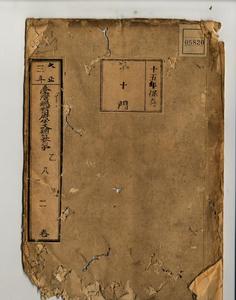 05820
十五年保存
第十門
大正三年
臺灣總督府公文類纂
乙
八
一一
卷